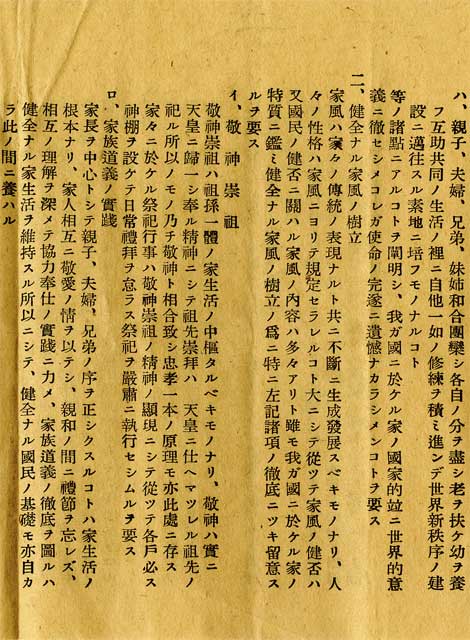 ハ、親子、夫婦、兄弟、姉妹和合團欒シ各自ノ分ヲ盡シ老ヲ扶ケ幼ヲ養
フ互助共同ノ生活ノ裡ニ自他一如ノ修練ヲ積ミ進ンデ世界新秩序ノ建
設ニ邁往スル素地ニ培フモノナルコト
等ノ諸點ニアルコトヲ闡明シ、我ガ國ニ於ケル家ノ國家的竝ニ世界的意
義ニ徹セシメコレガ使命ノ完遂ニ遺憾ナカラシメンコトヲ要ス
二、健全ナル家風ノ樹立
家風ハ家々ノ傳統ノ表現ナルト共ニ不斷ニ生成發展スベキモノナリ、人
々ノ性格ハ家風ニヨリテ規定セラレルコト大ニシテ從ツテ家風ノ健否ハ
又國民ノ健否ニ關ハル家風ノ內容ハ多々アリト雖モ我ガ國ニ於ケル家ノ
特質ニ鑑ミ健全ナル家風ノ樹立ノ爲ニ特ニ左記諸項ノ徹底ニツキ留意ス
ルヲ要ス
イ、敬神崇祖
敬神崇祖ハ祖孫一體ノ家生活ノ中樞タルベキモノナリ、敬神ハ實ニ
天皇ニ歸一シ奉ル精神ニシテ祖先崇拜ハ　天皇ニ仕ヘマツレル祖先ノ
祀ル所以ノモノ乃チ敬神ト相合致シ忠孝一本ノ原理モ亦此處ニ存ス
家々ニ於ケル祭祀行事ハ敬神崇祖ノ精神ノ顯現ニシテ從ツテ各戶必ス
神棚ヲ設ケテ日常禮拜ヲ怠ラス祭祀ヲ嚴肅ニ執行セシムルヲ要ス
ロ、家族道義ノ實踐
家長ヲ中心トシテ親子、夫婦、兄弟ノ序ヲ正シクスルコトハ家生活ノ
根本ナリ、家人相互ニ敬愛ノ情ヲ以テシ、親和ノ間ニ禮節ヲ忘レズ、
相互ノ理解ヲ深メテ協力奉仕ノ實踐ニ力メ、家族道義ノ徹底ヲ圖ルハ
健全ナル家生活ヲ維持スル所以ニシテ、健全ナル國民ノ基礎モ亦自カ
ラ此ノ間ニ養ハル